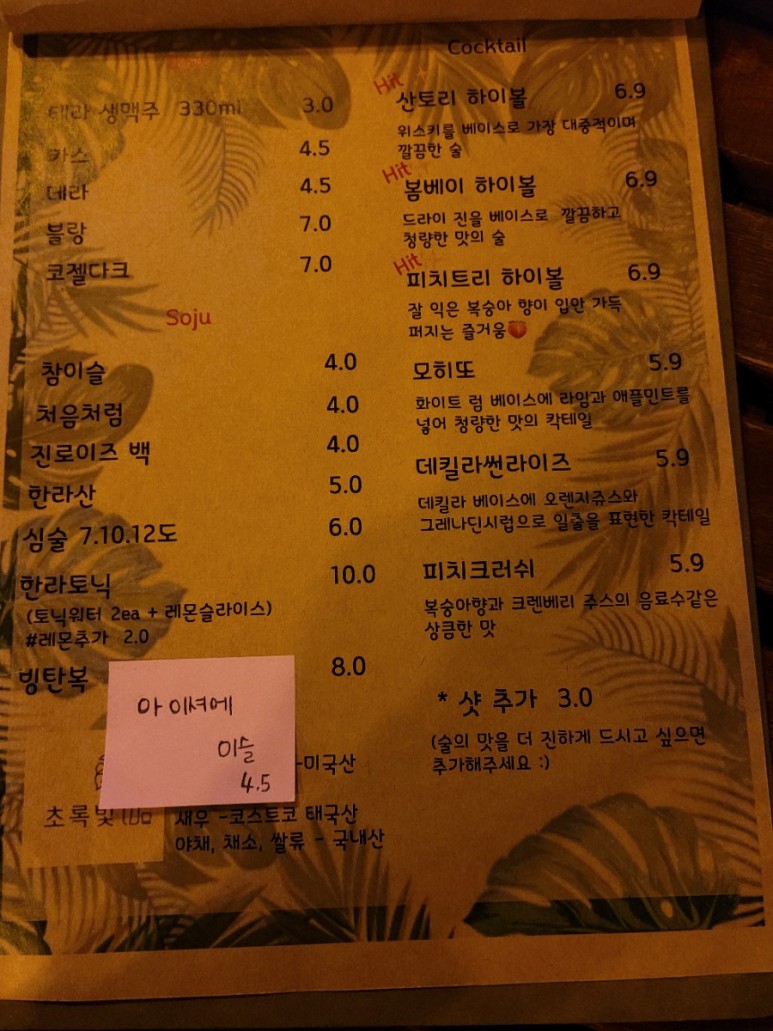 테라 생맥주 330ml 3.0
카스 4.5
테라 4.5
블랑 7.0
코젤다크 7.0
Soju
참이슬 4.0
처음처럼 4.0
진로이즈 백 4.0
한라산 5.0
심술 7.10.12도 6.0
한라토닉 10.0
(토닉워터 2ea + 레몬슬라이스)
#레몬추가 2.0
빙탄복 8.0
아이셔에
이슬
4.5
-미국산
초록빛
새우 -코스트코 태국산
야채, 채소, 쌀류 - 국내산
Cocktail
Hit
산토리 하이볼 6.9
위스키를 베이스로 가장 대중적이며
깔끔한 술
Hit
봄베이 하이볼 6.9
드라이 진을 베이스로 깔끔하고
청량한 맛의 술
Hit
피치트리 하이볼 6.9
잘 익은 복숭아 향이 입안 가득
퍼지는 즐거움🍑
모히또 5.9
화이트 럼 베이스에 라임과 애플민트를
넣어 청량한 맛의 칵테일
데킬라썬라이즈 5.9
데킬라 베이스에 오렌지쥬스와
그레나딘시럽으로 일출을 표현한 칵테일
피치크러쉬 5.9
복숭아향과 크렌베리 주스의 음료수같은
상큼한 맛
* 샷 추가 3.0
(술의 맛을 더 진하게 드시고 싶으면
추가해주세요 :)